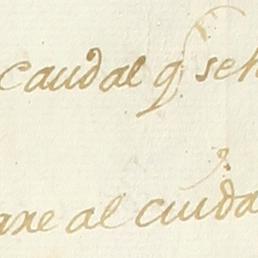 caudal q se h
ane al cuida